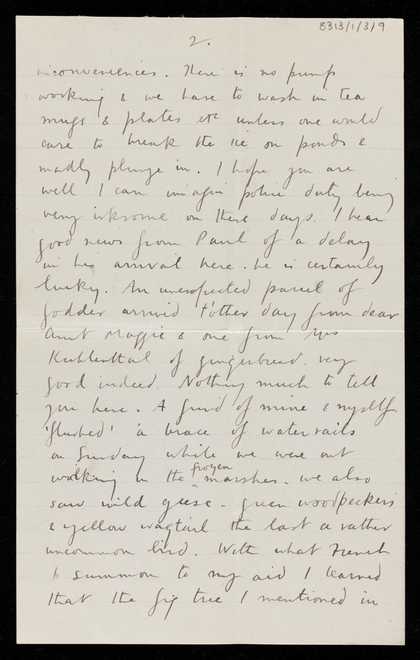 8313/1/3/9
2.
inconveniences. There is no pump
working & we have to wash in tea
mugs & plates etc unless one would
care to break the ice on ponds &
madly plunge in. I hope you are
well I can imagin police duty being
very irksome on these days. I hear
good news from Paul of a delay
in his arrival here. he is certainly
lucky. An unexpected parcel of
fodder arrived t'other day from dear
Aunt Maggie & one from Mrs
of gingerbread. very
good indeed. Nothing much to tell
you here. A friend of mine & myself
'flushed' a brace of water rails
on Sunday while we were out
walking in the frozen marshes. we also
saw wild geese - green woodpeckers
& yellow wagtail the last a rather
uncommon bird. With what French
to summon to my aid I learned
that the fig tree I mentioned in